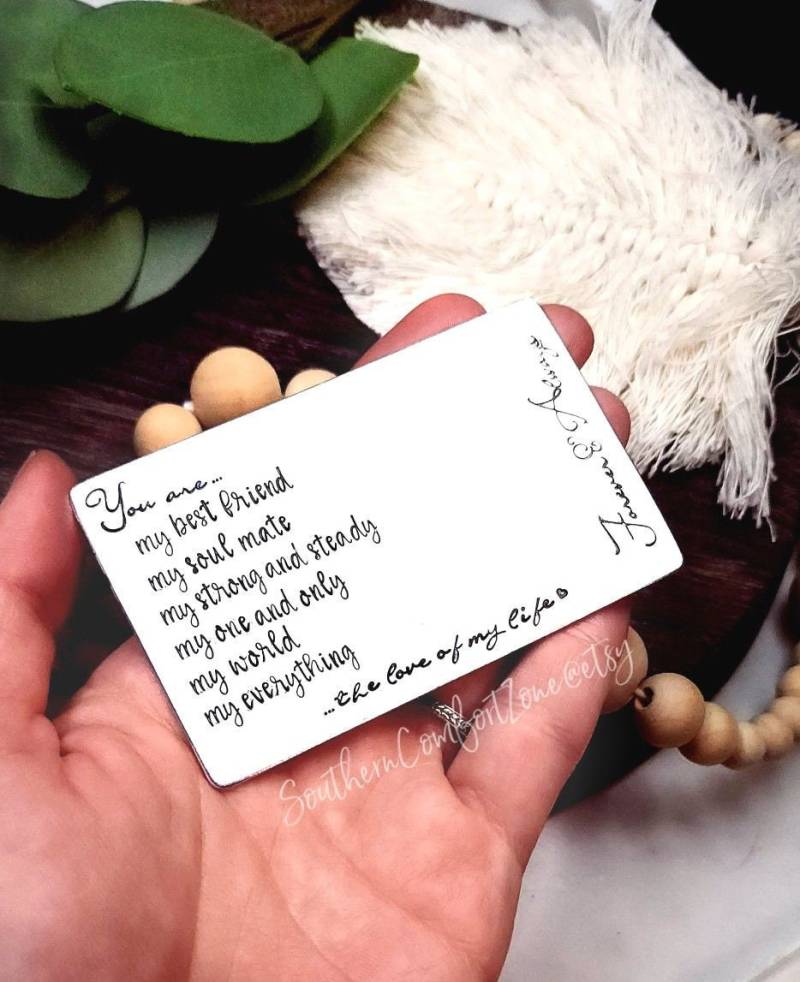 You are...
my best friend
my soul mate
my strong and steady
my one and only
my world
my everything
...the love of my life
Forever & Always
SouthernComfortZone@etsy